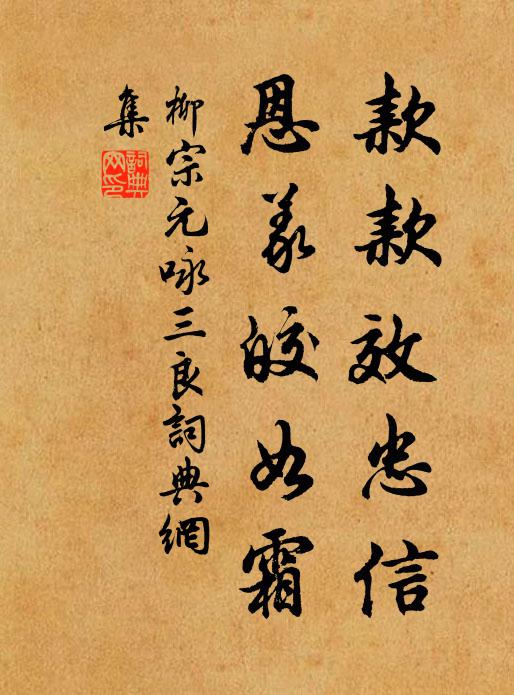 款款效忠信
恩義皎如霜
柳宗元咏三良詞典網
集
詞典網印